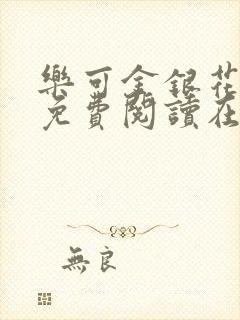 樂可金銀花
免費閱讀在
無良